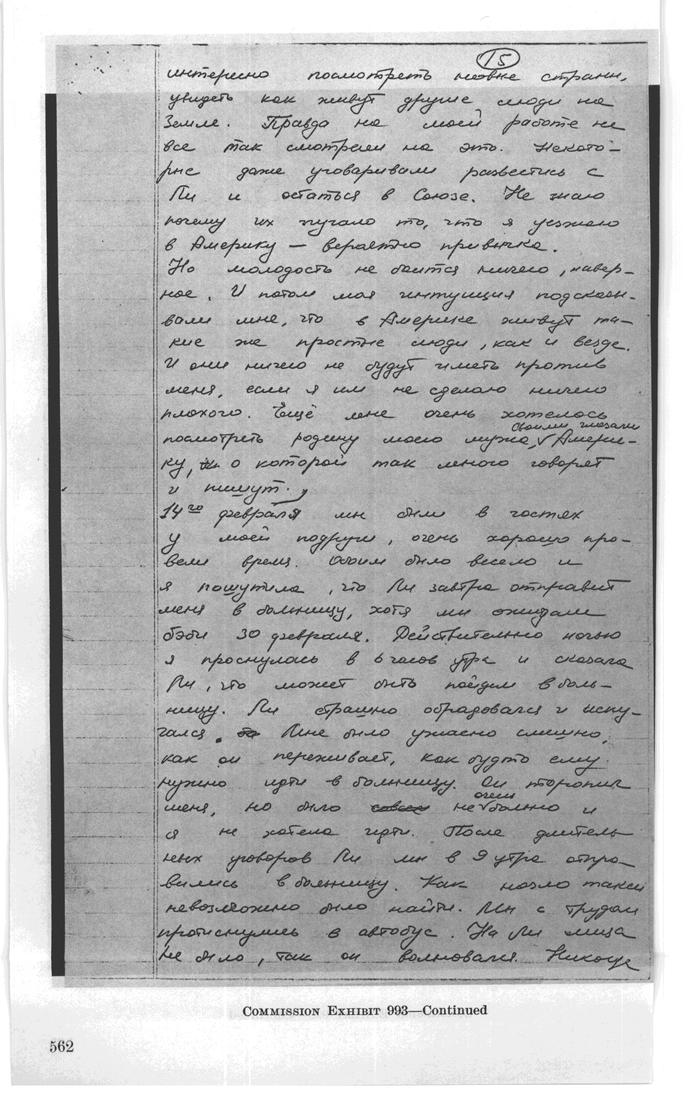 15
интересно посмотреть новые страны,
увидеть как живут другие люди на
Земле. Правда на моей работе не
все так смотрели на это. Некото-
рые даже уговаривали развестись с
Ли и остаться в Союзе. Не знаю
почему их пугало то, что я уезжаю
в Америку — вероятно привычка.
Но молодость не боится ничего, навер-
ное. И потом моя интуиция подсказы-
вали мне, что в Америке живут та-
кие же простые люди, как и везде.
И они ничего не будут иметь против
меня, если я им не сделаю ничего
плохого. Ещё мне очень хотелось
своими глазами
посмотреть родину моего мужа, Амери-
ку, о которой так много говорят
и пишут.
14го февраля мы были в гостях
у моей подруги, очень хорошо про-
вели время. Обоим было весело и
я пошутила, что Ли завтра отправит
меня в больницу, хотя мы ожидали
бэби 30 февраля. Действительно ночью
я проснулась в 6 часов утра и сказала
Ли, что может быть пойдем в боль-
ницу. Ли страшно обрадовался и испу-
гался. Мне было ужасно смешно,
как он переживает, как будто ему
нужно идти в больницу. Он торопил
очень
меня, но было совсем не больно и
я не хотела идти. После длитель
ных уговоров Ли мы в 9 утра отпра-
вились в больницу. Как назло такси
невозможно было найти. Мы с трудом
протиснулись в автобус. На Ли лица
не было, так он волновался.
COMMISSION EXHIBIT 993—Continued
562